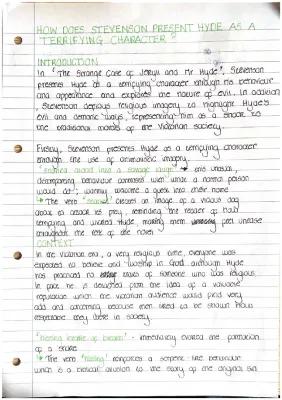 HOW DOES STEVENSON PRESENT HYDE AS A
TERRIFYING CHARACTER?
INTRODUCTION
In 'The Strange Case of Jekyll and Mr Hyde', Stevenson
presents Hyde as a terrifying character through his behaviour
and appearance and explores the nature of evil. In addition
, Stevenson depicts religious imagery to highlight Hyde's
evil and demonic ways, representing him as a threat to
the traditional morals of the Victorian society.
Firstly, Stevenson presents Hyde as a terrifying character
through the use of animalistic imagery.
"snarled aloud into a savage laugh" → this unusual,
behaviour contrasts with what a normal person
would do; welcome a guest into their home
↳ The verb "snarled" creates an image of a vicious dog
about to attack its prey, reminding the reader of how
terrifying and wicked Hyde, making them feel unease
throughout the rest of the novel
CONTEXT
In the Victorian era, a very religious time, everyone was
expected to believe and worship in God although Hyde
has practiced no traits of someone who was religious.
In fact he is detached from the idea of a valuable
reputation which the Victorian audience would find very
odd and concerning because men liked to be shown
respectable they were in society.
"hissing intake of breath" - immediately evokes the
of a snake
↳ The verb "hissing" reinforces a serpent-like behaviour
which is a biblical allusion to the story of the original sin